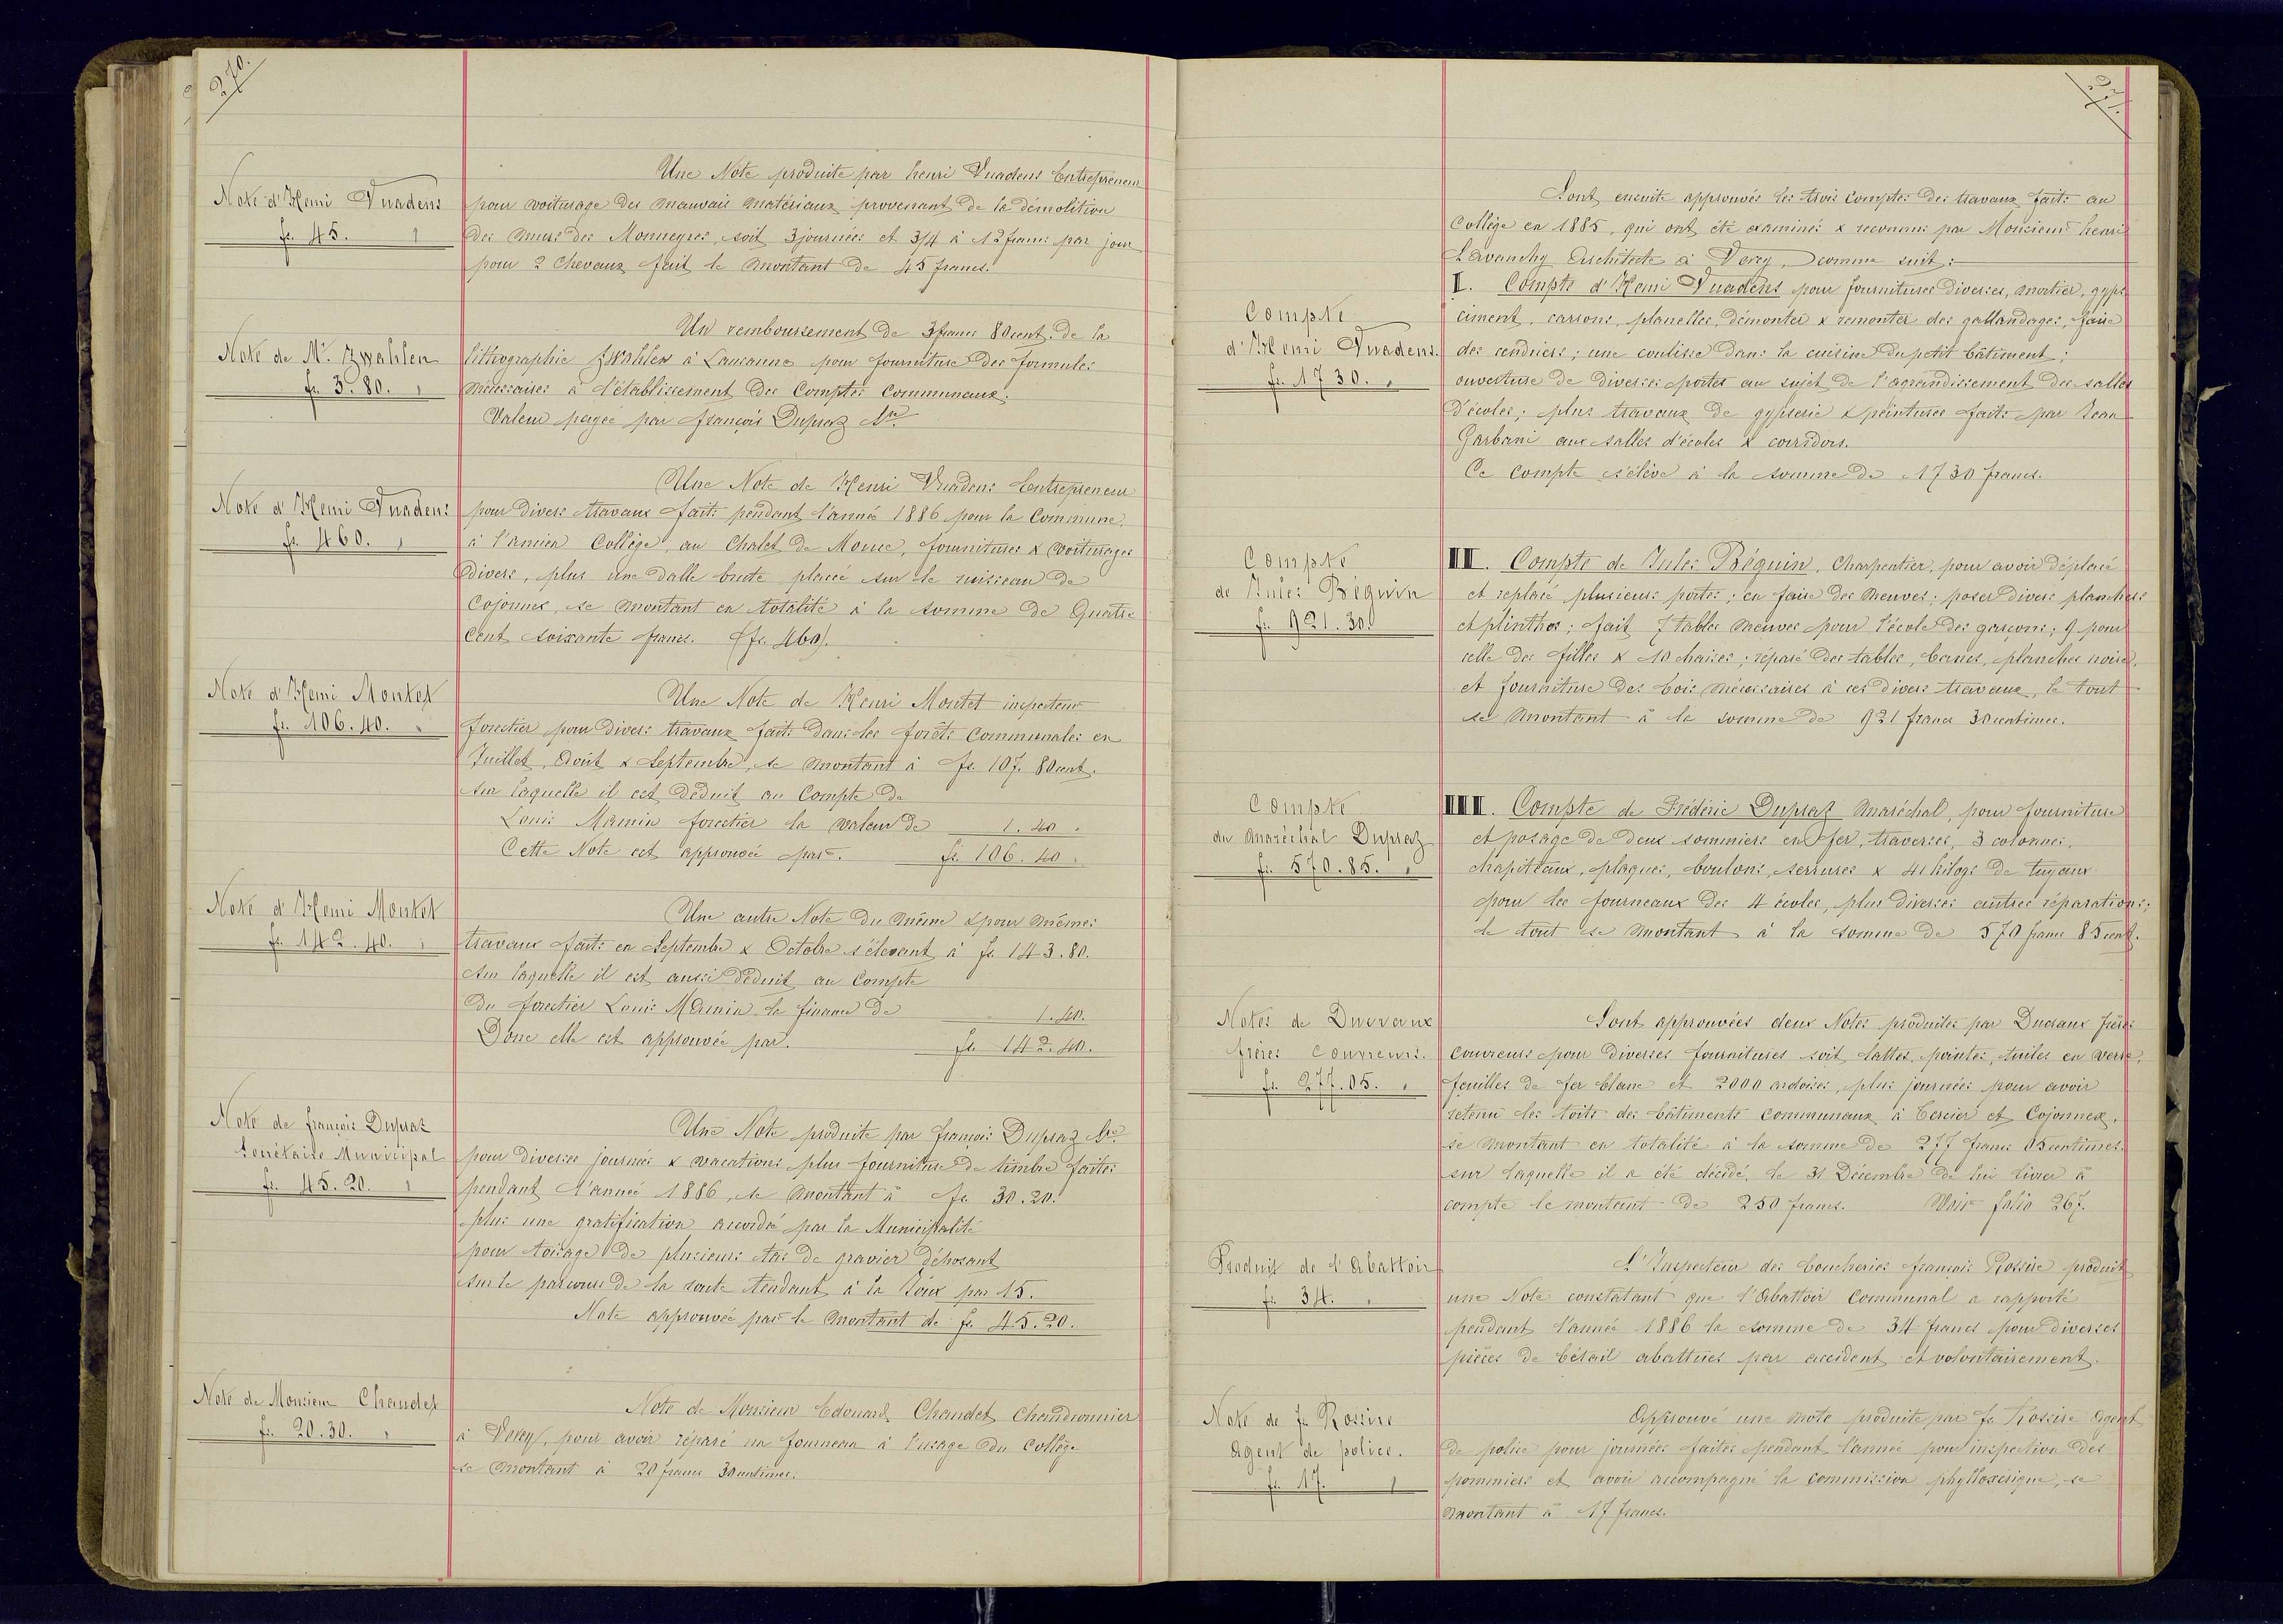 270.
Note d'Henri Vuadens
fr. 45. "
Une Note produite par henri Vuadens Entrepreneur
pour voiturage des mauvais matériaux provenant de la démolition
des murs des Monneyres, soit 3 journées et 3/4 à 12 francs par jour
pour 2 chevaux fait le montant de 45 francs.
Note de Mr. Zwahlen
fr. 3.80. "
Un remboursement de 3 francs 80 cent. de la
lithographie Zwahlen à Lausanne pour fourniture des formules
nécessaires à l'établissement des Comptes Communaux.
Valeur payée par françois Dupraz Sre
Note d'Henri Vuadens
fr. 460. "
Une Note de Henri Vuadens Entrepreneur
pour divers travaux faits pendant l'année 1886 pour la Commune,
à l'ancien Collège, au Chalet de Mousse, fournitures & voiturages
divers, plus une dalle brute placée sur le ruisseau de
Cojonnex, se montant en totalité à la somme de Quatre
Cent soixante francs. (fr. 460).
Note d'Henri Montet
fr. 106.40. "
Une Note de Henri Montet inspecteur
forestier pour divers travaux faits dans les forêts Communales en
Juillet, Août & Septembre, se montant à fr. 107. 80 cent.
sur laquelle il est déduit au Compte de
Louis Mamin forestier la valeur de 1.40 "
Cette Note est approuvée par. fr. 106.40 "
Note d'Henri Montet
fr. 142.40. "
Une autre Note du même & pour mêmes
travaux faits en Septembre & Octobre s'élevant à fr. 143.80.
sur laquelle il est aussi déduit au Compte
du forestier Louis Mamin la finance de 1.40.
Donc elle est approuvée par. fr. 142.40.
Note de françois Dupraz
Secrétaire Municipal
fr. 45.20. "
Une Note produite par françois Dupraz Sre
pour diverses journées & vacations plus fourniture de timbre faites
pendant l'année 1886, se montant à fr. 30.20.
plus une gratification accordée par la Municipalité
pour toisage de plusieurs tas de gravier déposant
sur le parcours de la route tendant à la Joux par 15.
Note approuvée par le montant de fr. 45.20.
Note de Monsieur Chaudet
fr. 20.30. "
Note de Monsieur Edouard Chaudet Chaudronnier
à Vevey, pour avoir réparé un fourneau à l'usage du Collège
se montant à 20 francs 30 centimes.
271.
Sont ensuite approuvés les trois comptes des travaux faits au
Collège en 1885, qui ont été examinés & reconnus par Monsieur henri
Lavanchy Architecte à Vevey, comme suit:
Compte
d'Henri Vuadens.
fr. 1730. "
I. Compte d'Henri Vuadens pour fournitures diverses, mortier, gyps
ciment, carrons, planelles, démonter & remonter des gallandages, faire
des cendriers; une coulisse dans la cuisine du petit bâtiment;
ouverture de diverses portes au sujet de l'agrandissement des salles
d'écoles; plus travaux de gypserie & peintures faits par Jean
Garbani aux salles d'écoles & corridors.
Ce compte s'élève à la somme de 1730 francs.
Compte
de Jules Béguin
fr. 921.30.
II. Compte de Jules Béguin, Charpentier, pour avoir déplacé
et replacé plusieurs portes; en faire des neuves; poser divers planchers
et plinthes; fait 7 tables neuves pour l'école des garçons; 9 pour
celle des filles & 10 chaises; réparé des tables, bancs, planches noires,
et fourniture des bois nécessaires à ces divers travaux, le tout
se montant à la somme de 921 francs 30 centimes.
Compte
du maréchal Dupraz
fr. 570.85. "
III. Compte de Frédéric Dupraz Maréchal, pour fourniture
et posage de deux sommiers en fer, traverses, 3 colonnes,
chapiteaux, plaques, boulons, serrures & 41 kilogs de tuyaux
pour les fourneaux des 4 écoles, plus diverses autres réparations;
le tout se montant à la somme de 570 francs 85 cent.
Notes de Ducraux
frères couvreurs.
fr. 277.05. "
Sont approuvées deux Notes produites par Ducraux frères
couvreurs pour diverses fournitures soit lattes, pointes, tuiles en verre,
feuilles de fer blanc et 2000 ardoises, plus journées pour avoir
retenu les toits des bâtiments communaux à Cercier et Cojonnex,
se montant en totalité à la somme de 277 francs 05 centimes.
sur laquelle il a été décidé, le 31 Décembre de lui livrer à
compte le montant de 250 francs. Voir folio 267.
Produit de l'Abattoir
fr. 34. "
L'Inspecteur des boucheries françois Rossire produit
une Note constatant que l'Abattoir Communal a rapporté
pendant l'année 1886 la somme de 34 francs pour diverses
pièces de bétail abattues par accident et volontairement.
Note de fs Rossire
Agent de police.
fr. 17. "
Approuvé une note produite par fs Rossire Agent
de police pour journées faites pendant l'année pour inspection des
pommiers et avoir accompagné la commission phylloxérique, se
montant à 17 francs.